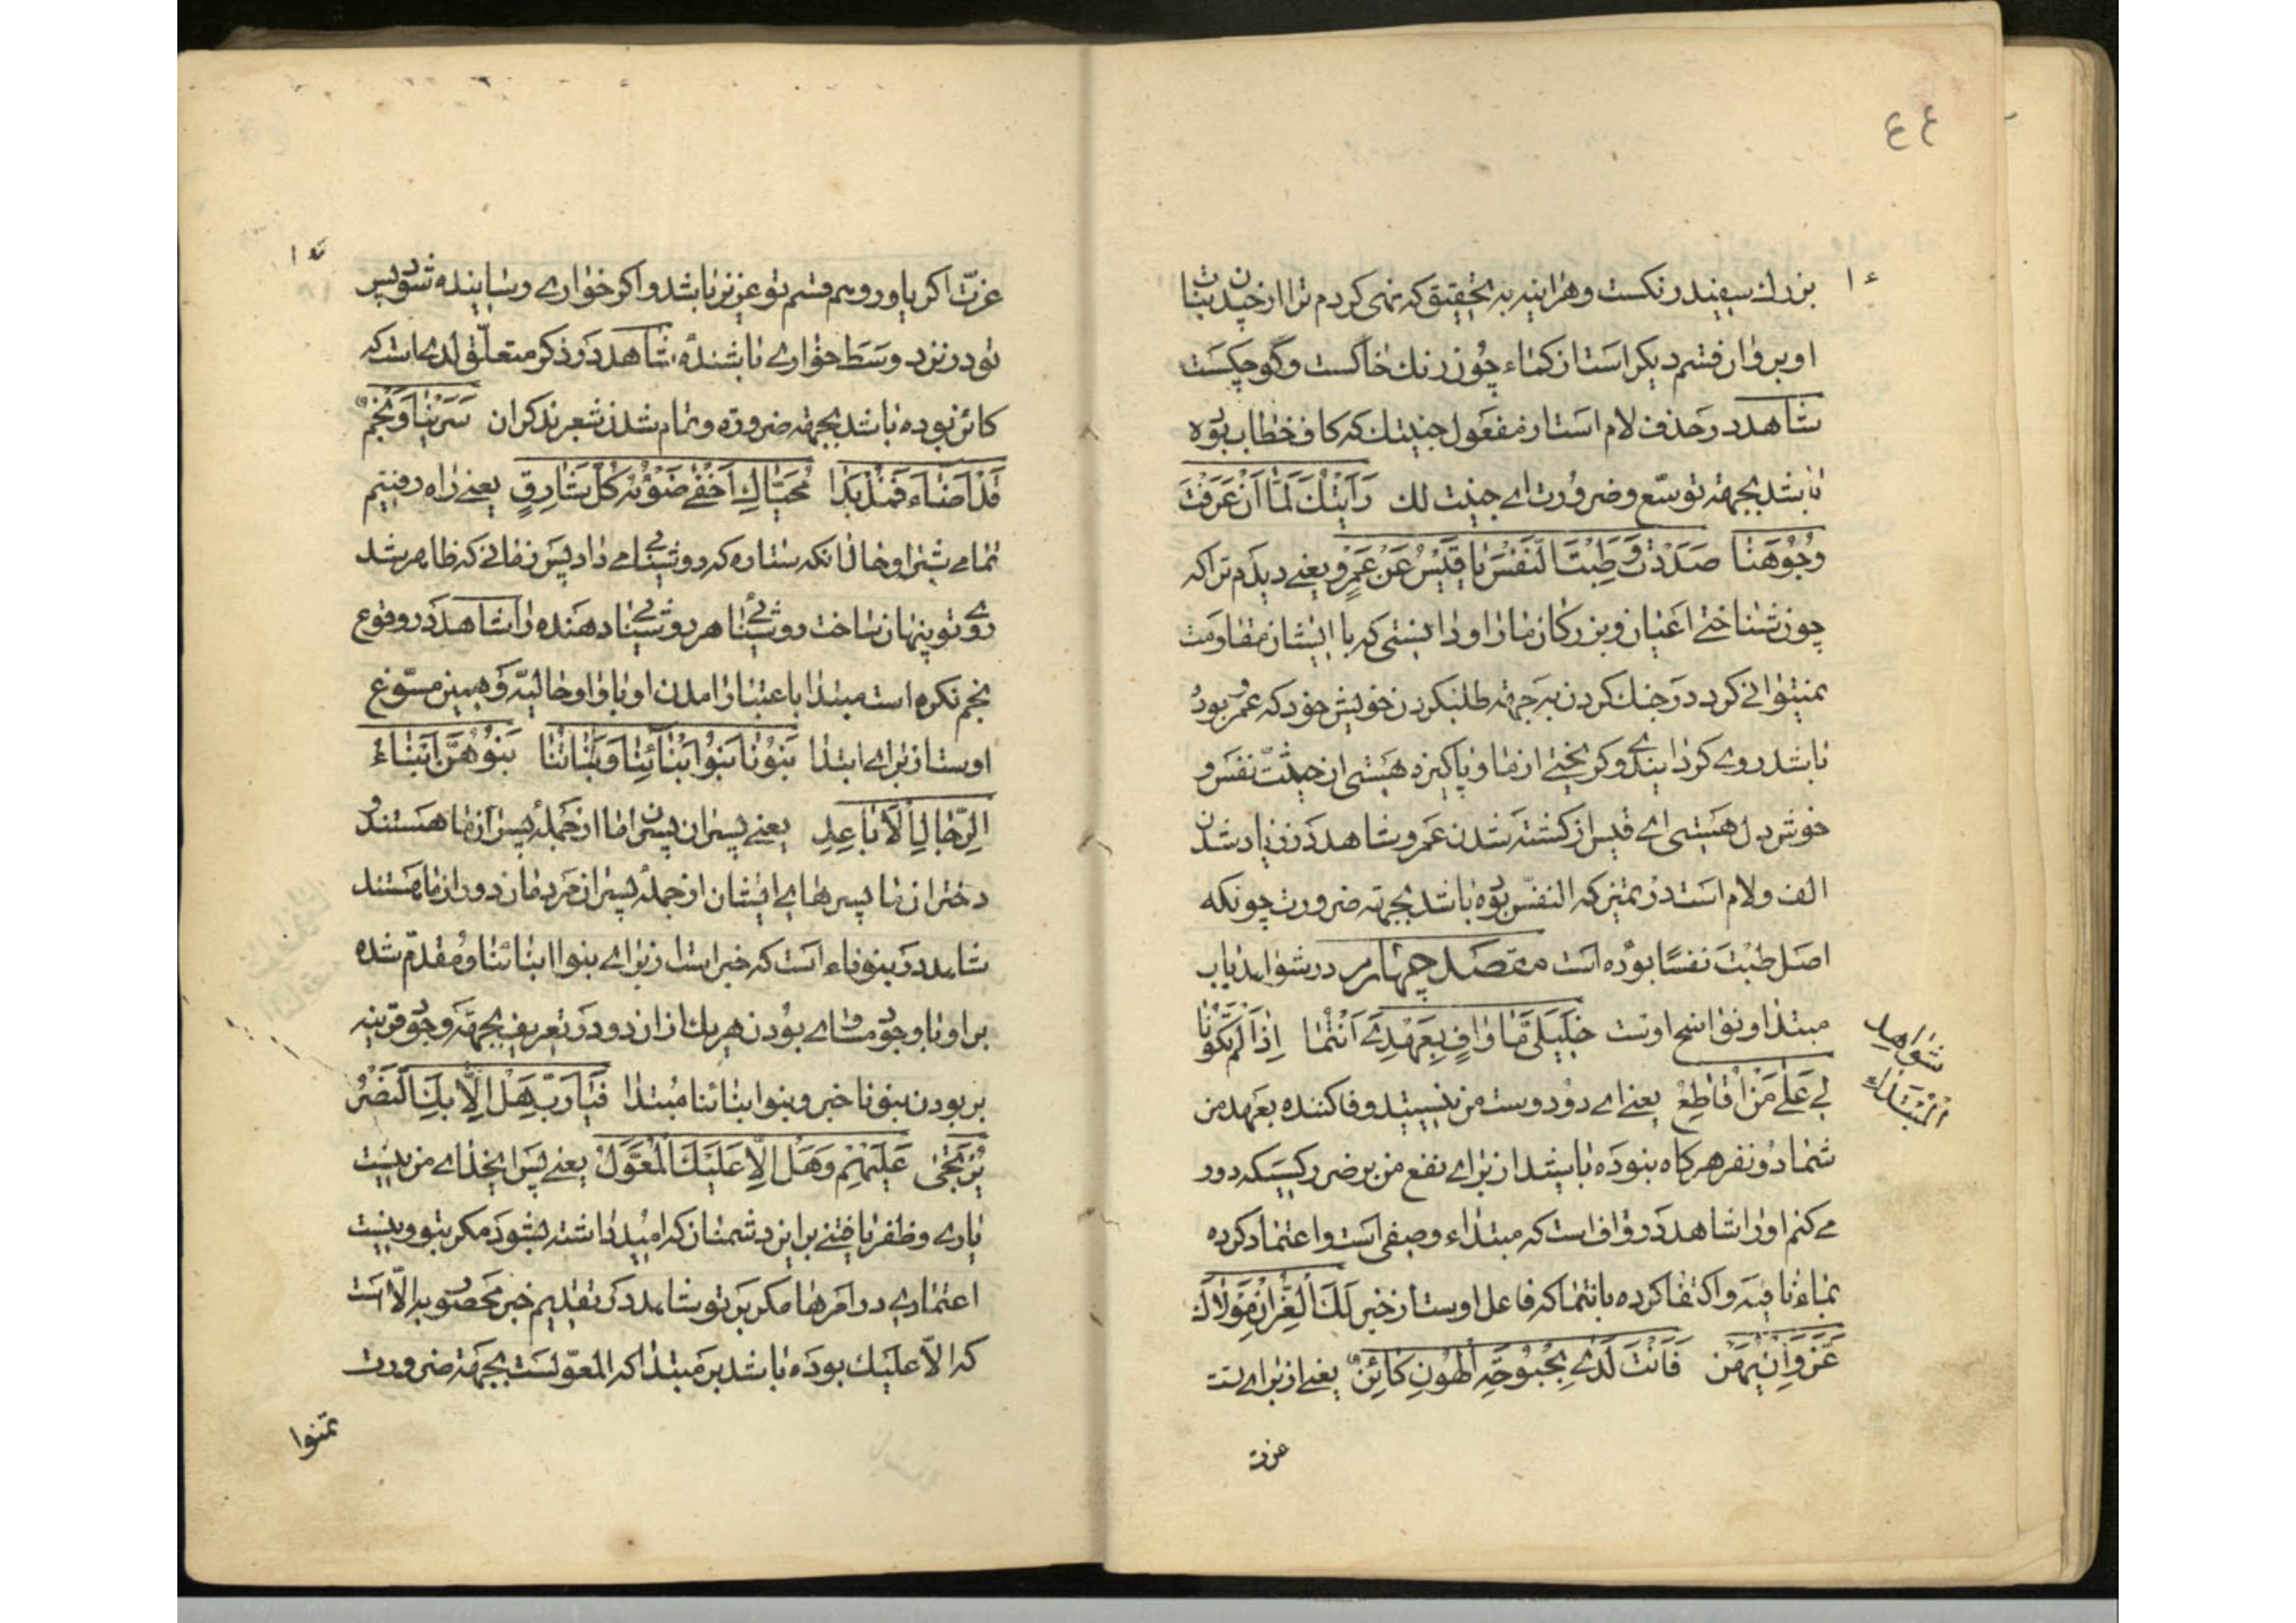 ٤٤
بزرك سفيد رنكست وهراينه به تحقيق كه نهى كردم ترا از چيدن بنات
او بر وان قسم ديكر است از كماء چون رنك خاكست وكوچكست
شاهد در حذف لام است از مفعول جنيتك كه كاف خطاب بوده
باشد بجهة توسّع وضرورت اے جنيت لك رَأَيْتُكَ لَمَّا أَنْ عَرَفْتَ
وُجُوهَنَا صَدَدْتَ وَطِبْتَ النَّفْسَ يَا قَيْسُ عَنْ عَمْرٍو يعنے ديدم ترا كه
چون شناختے اعيان وبزركان ما را و دانستى كه با ايشان مقاومت
نميتوانے كرد در جنك كردن به جهة طلبكردن خويش خود كه عمرو بود
باشد روے كردانيدے وكريختے از ما و پاكيزه هستى از حيثت نفس و
خوش دل هستى اے قيس از كشته شدن عمرو شاهد در زياد شدن
الف ولام است در تميز كه النفس بوده باشد بجهة ضرورت چونكه
اصل طبت نفسًا بوده است مقصد چهارم در شواهد باب
مبتدا و نواسخ اوست خَلِيلَيَّ مَا وَافٍ بِعَهْدِي أَنْتُمَا إِذَا لَمْ تَكُونَا
لِي عَلَى مَنْ أُقَاطِعُ يعنے اے دو دوست من نيستيد وفا كننده بعهد من
شما دو نفر هركاه نبوده باشيد از براے نفع من بر ضرر كسيكه دور
مے كنم او را شاهد در واف است كه مبتداء وصفى است واعتماد كرده
بماء نافيه واكتفا كرده بانتما كه فاعل اوست از خبر لَكَ الْعِزُّ إِنْ مَوْلَاكَ
عَزَّ وَإِنْ يَهُنْ فَأَنْتَ لَدَى بُحْبُوحَةِ الْهُونِ كَائِنٌ يعنے از براے تست
عزت
شواهد
المبتداء
عزّت اكر ياور وهم قسم تو عزيز باشد واكر خوارے وسايبنده شود پس
تو در نزد وسط خوارے باشنده شاهد در ذكر متعلّق لدے است كه
كائن بوده باشد بجهة ضرورة وتمام شدن شعر بذكر ان سَرَيْنَا وَنَجْمٌ
قَدْ أَضَاءَ فَمُذْ بَدَا مُحَيَّاكِ أَخْفَى ضَوْؤُهُ كُلَّ شَارِقٍ يعنے راه رفتيم
تمامے شب را وحالانكه ستاره كه روشنيامے داد پس زمانے كه ظاهر شد
روے تو پنهان ساخت روشنيئ هر روشنى دهنده را شاهد در وقوع
نجم نكره است مبتدا باعتبار امدن او با واو حاليّه وهمين مسوّغ
اوست از براے ابتدا بَنُونَا بَنُوا أَبْنَائِنَا وَبَنَاتُنَا بَنُوهُنَّ أَبْنَاءُ
الرِّجَالِ الْأَبَاعِدِ يعنے پسران پسران ما از جمله پسران ما هستند و
دختران ما پسرهاے ايشان از جمله پسران مردمان دور از ما هستند
شاهد در بنوناء است كه خبر است از براے بنوا ابنائنا ومقدّم شده
بر او با وجود مساوے بودن هر يك از ان دو در تعريف بجهة وجود قرينه
بر بودن بنونا خبر وبنوا ابنائنا مبتدا فَيَا رَبِّ هَلْ إِلَّا بِكَ النَّصْرُ
يُرْتَجَى عَلَيْهِمْ وَهَلْ إِلَّا عَلَيْكَ الْمُعَوَّلُ يعنے پس ايخداے من نيست
يارے وظفر يافتنے بر اين دشمنان كه اميد داشته بشود مكر بتو ونيست
اعتمادے در امرها مكر بر تو شاهد در تقديم خبر محصور به الّا است
كه الّا عليك بوده باشد بر مبتدا كه المعوّلست بجهة ضرورت
تمنوا